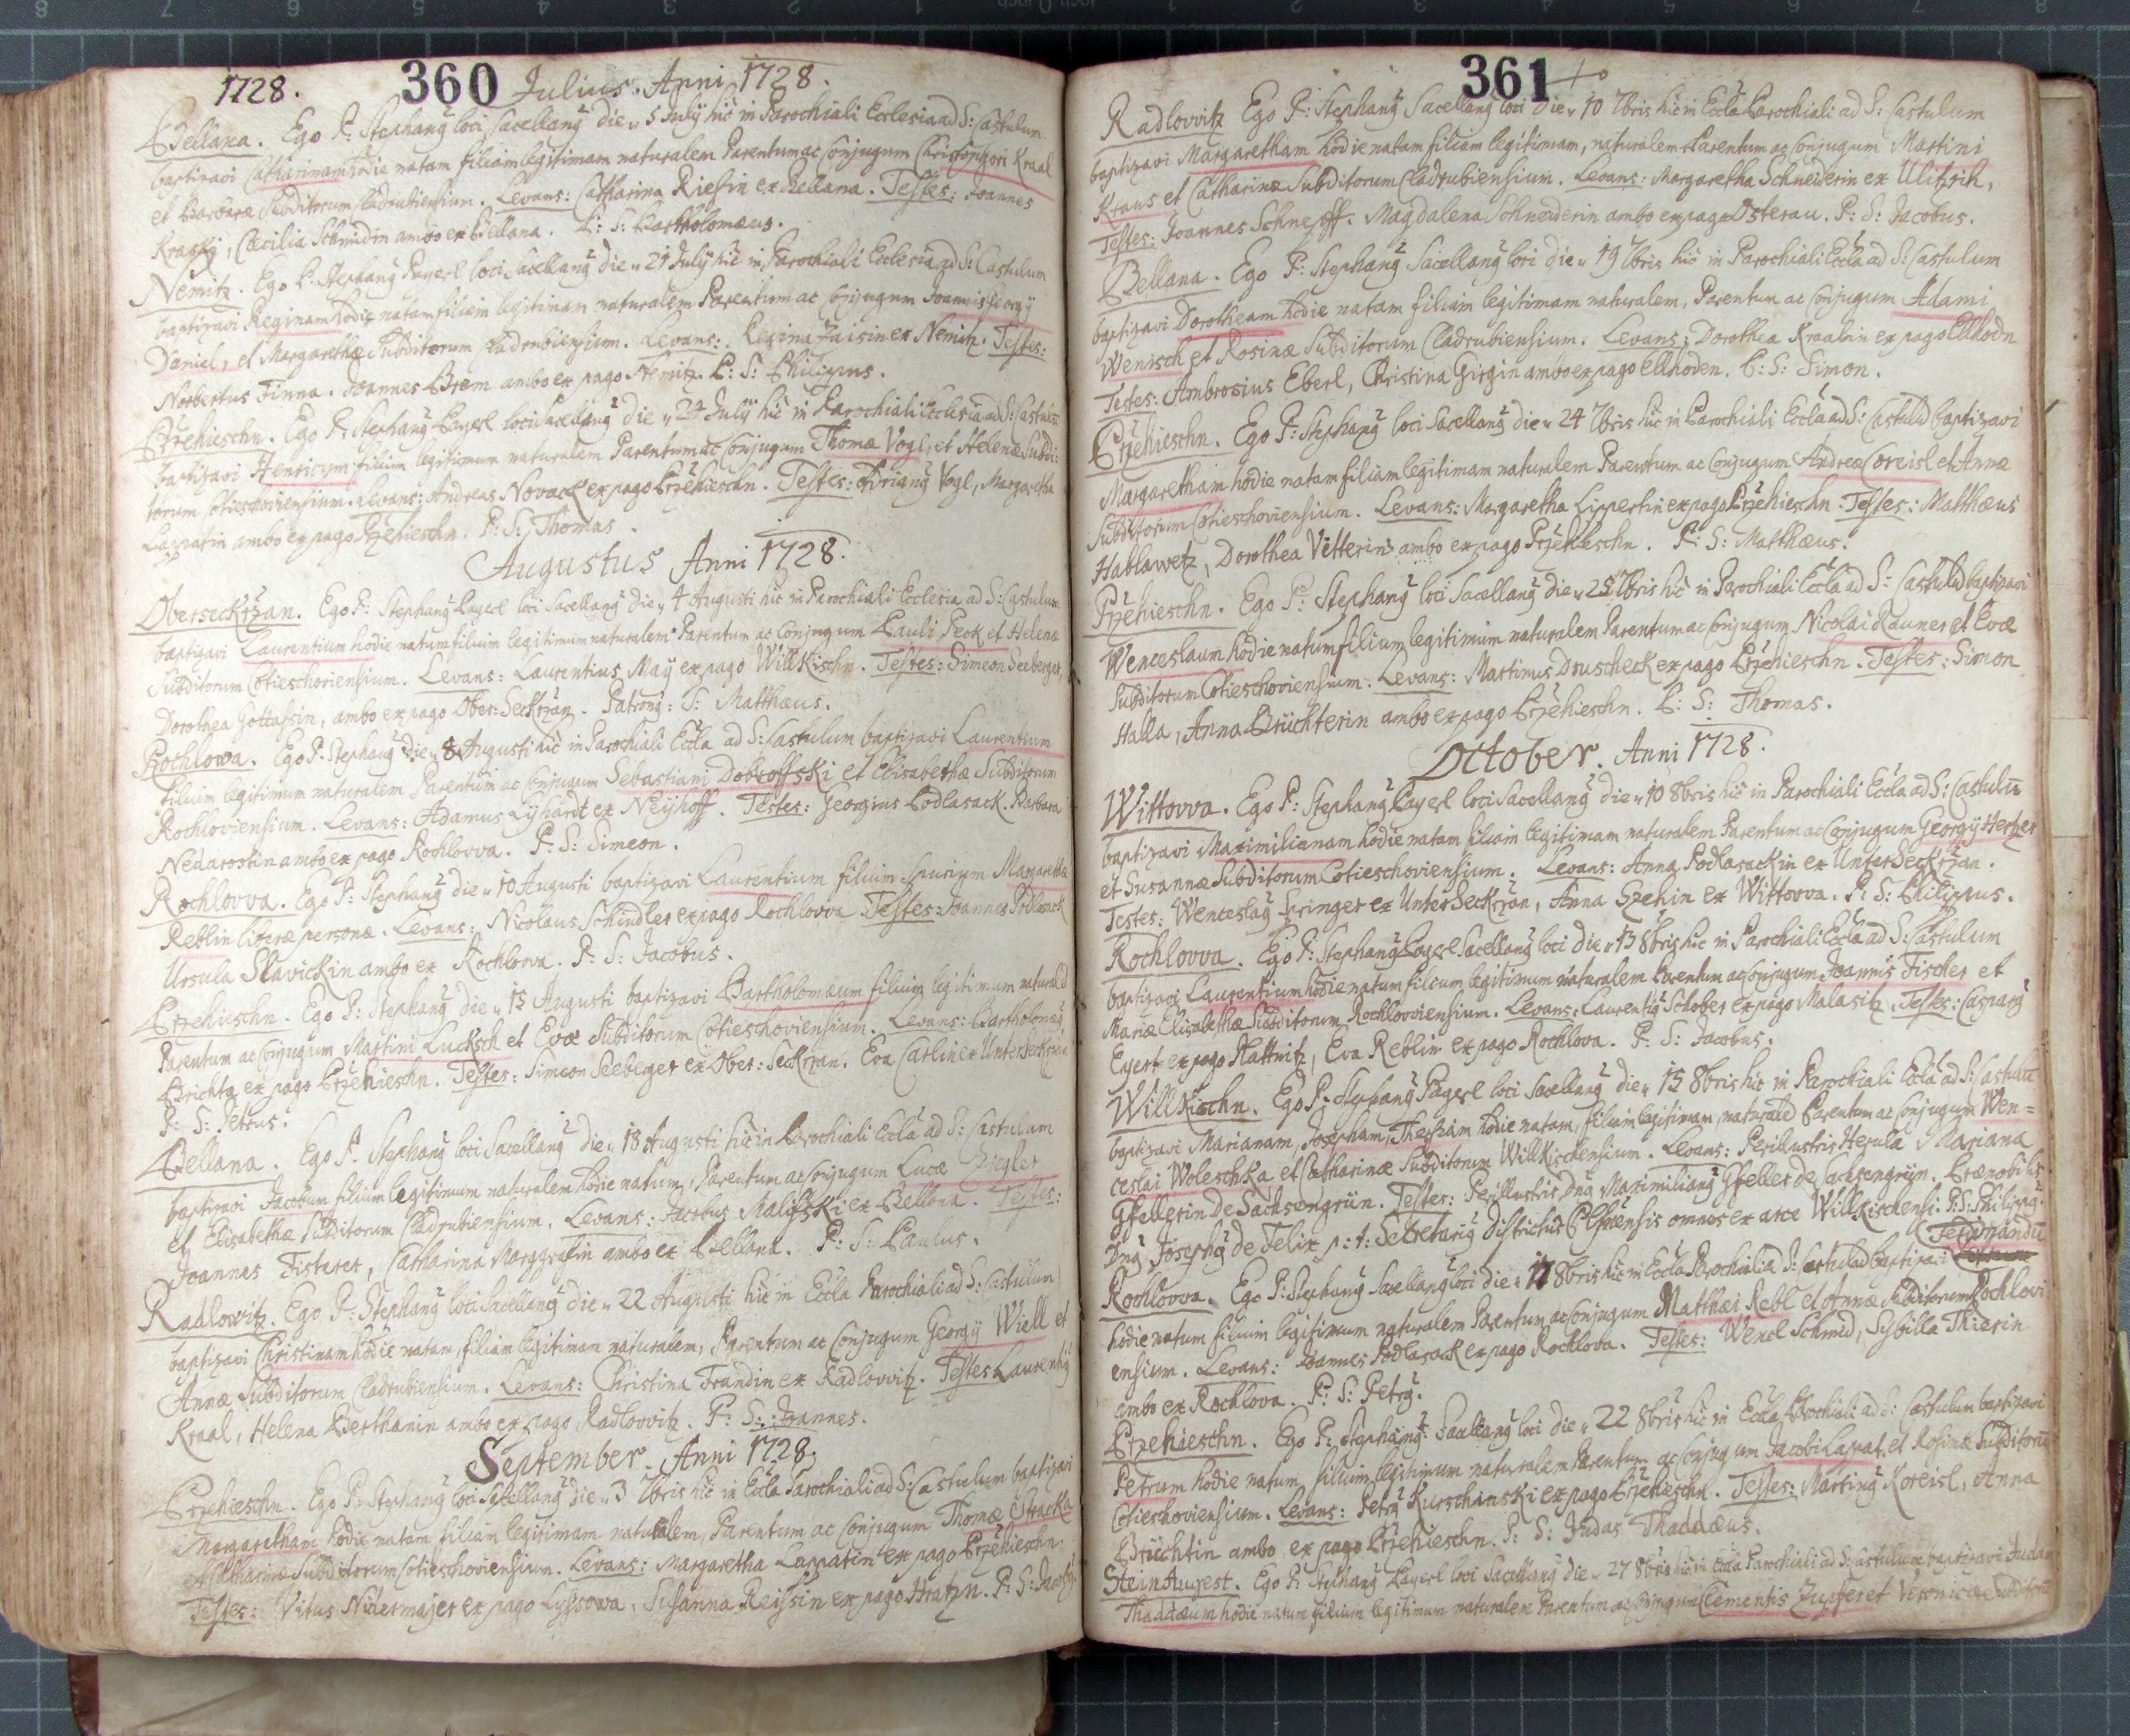 1728. 360 Julius. Anni 1728.
Bellana. Ego P: Stephanȝ loci Sacellanȝ die 5 July hic in Parochiali Ecclesia ad S: Castulum
baptizavi Catharinam hodie natam filiam legitimam naturalem Parentum ac Conjugum Christophori Kraal
et Barbaræ Subditorum Cladrubiensium. Levans: Catharina Riesin ex Bellana. Testes: Joannes
Cæcilia Schmidin ambo ex Bellana. P: S: Bartholomæus.
Nemitz. Ego P: Stephanȝ Payerl loci Sacellanȝ die 21 July hic in Parochiali Ecclesia ad S: Castulum
baptizavi Reginam hodie natam filiam legitimam naturalem Parentum ac Conjugum Joannis Georgÿ
Daniel, et Margarethæ Subditorum Cladrubiensium. Levans: Regina Zaisin ex Nemitz. Testes:
Norbertus Finna. Joannes Brem ambo ex pago Nemitz. P: S: Philippus.
Przehieschn. Ego P: Stephanȝ Payerl loci Sacellanȝ die 24 July hic in Parochiali Ecclesia ad S: Castulū
baptizavi Henricum filium legitimum naturalem Parentum ac Conjugum Thomæ Vogl, et Helenæ Subdi:
torum Cotieschoviensium. Levans: Andreas Novack ex pago Przehieschn. Testes: Adrianȝ Vogl, Margaretha
Lappatin ambo ex pago Przehieschn. P: S: Thomas.
Augustus Anni 1728.
Oberseckrzan. Ego P: Stephanȝ Payerl loci Sacellanȝ die 4 Augusti hic in Parochiali Ecclesia ad S: Castulum
baptizavi Laurentium hodie natum filium legitimum naturalem Parentum ac Conjugum Pauli Peck et Helenæ
Subditorum Cotieschoviensium. Levans: Laurentius Maÿ ex pago Willkischn. Testes: Simeon Seeberger,
Dorothea Gottassin, ambo ex pago Ober:Seckrzan. Patronȝ: S: Matthæus.
Rochlowa. Ego P: Stephanȝ die 8 Augusti hic in Parochiali Eccla ad S: Castulum baptizavi Laurentium
filium legitimum naturalem Parentum ac Conjugum Sebastiani Dobroffski et Elisabethæ Subditorum
Rochloviensium. Levans: Adamus Lyhardt ex Neÿhoff. Testes: Georgius Podlasack. Barbara
Nedarostin ambo ex pago Rochlovva. P: S: Simeon.
Rochlovva. Ego P: Stephanȝ die 10 Augusti baptizavi Laurentium filium spurium Margarethæ
Reblin liberæ personæ. Levans: Nicolaus Schindler ex pago Rochlovva. Testes: Joannes Podlasack
Ursula Slavickin ambo ex Rochlovva. P: S: Jacobus.
Przehieschn. Ego P: Stephanȝ die 15 Augusti baptizavi Bartholomæum filium legitimum
Parentum ac Conjugum Martini Lucksch et Evæ Subditorum Cotieschoviensium. Levans: Bartholomæȝ
Brichta ex pago Przehieschn. Testes: Simeon Seeberger ex Ober:Seckrzan. Eva Carlin ex UnterSeckrzan
P: S: Petrus.
Bellana. Ego P: Stephanȝ loci Sacellanȝ die 18 Augusti hic in Parochiali Eccla ad S: Castulum
baptizavi Jacobum filium legitimum naturalem hodie natum, Parentum ac Conjugum Lucæ Ziegler
et Elisabethæ Subditorum Cladrubiensium. Levans: Jacobus Maliffski ex Bellana. Testes:
Joannes Fisterer, Catharina Marggrafin ambo ex Bellana. P: S: Paulus.
Radlowitz. Ego P: Stephanȝ loci Sacellanȝ die 22 Augusti hic in Eccla Parochiali ad S: Castulum
baptizavi Christinam hodie natam, filiam legitimam naturalem, Parentum ac Conjugum Georgÿ Wiell et
Annæ Subditorum Cladrubiensium. Levans: Christina Frandin ex Radlovvitz. Testes Laurentiȝ
Kraal, Helena Berthanin ambo ex pago Radlovvitz. P: S: Joannes.
September. Anni 1728.
Przehieschn. Ego P: Stephanȝ loci Sacellanȝ die 3 7bris hic in Eccla Parochiali ad S: Castulum baptizavi
Margaretham hodie natam filiam legitimam naturalem, Parentum ac Conjugum Thomæ Stracka
et Catharinæ Subditorum Cotieschoviensium. Levans: Margaretha Lappatin ex pago Przehieschn.
Testes: Vitus Nidermajer ex pago Lyssowa, Susanna Reissin ex pago Hratzn. P: S: Jacobȝ
361
Radlovvitz Ego P: Stephanȝ Sacellanȝ loci die 10 7bris hic in Eccla Parochiali ad S: Castulum
baptizavi Margaretham hodie natam filiam legitimam, naturalem Parentum ac Conjugum Martini
Kraus et Catharinæ Subditorum Cladrubiensium. Levans: Margaretha Schneiderin ex Ulitzsih,
Testes: Joannes Schnepff. Magdalena Schneiderin ambo ex pago Osterau. P: S: Jacobus.
Bellana. Ego P: Stephanȝ Sacellanȝ loci die 19 7bris hic in Parochiali Eccla ad S: Castulum
baptizavi Dorotheam hodie natam filiam legitimam naturalem, Parentum ac Conjugum Adami
Wenisch et Rosinæ Subditorum Cladrubiensium. Levans: Dorothea Kraalin ex pago Ellhodn
Testes: Ambrosius Eberl, Christina Girgin ambo ex pago Ellhoden. P: S: Simon.
Przehieschn. Ego P: Stephanȝ loci Sacellanȝ die 24 7bris hic in Parochiali Eccla ad S: Castulū baptizavi
Margaretham hodie natam filiam legitimam naturalem Parentum ac Conjugum Andreæ Coreisl et Annæ
Subditorum Cotieschoviensium. Levans: Margaretha Lippertin ex pago Przehieschn. Testes: Matthæus
Hablawetz, Dorothea Vetterin ambo ex pago Przehieschn. P: S: Matthæus.
Przehieschn. Ego P: Stephanȝ loci Sacellanȝ die 25 7bris hic in Parochiali Eccla ad S: Castulū baptizavi
Wenceslaum hodie natum filium legitimum naturalem Parentum ac Conjugum Nicolai Rauner et Evæ
Subditorum Cotieschoviensium. Levans: Martinus Druscheck ex pago Przehieschn. Testes: Simon
Halla, Anna Brüchterin ambo ex pago Przehieschn. P: S: Thomas.
October. Anni 1728.
Wittovva. Ego P: Stephanȝ Payerl loci Sacellanȝ die 10 8bris hic in Parochiali Eccla ad S: Castulū
baptizavi Maximilianam hodie natam filiam legitimam naturalem Parentum ac Conjugum Georgÿ Herber
et Susannæ Subditorum Cotieschoviensium. Levans: Anna Podlasackin ex UnterSeckrzan.
Testes: Wenceslaȝ Springer ex UnterSeckrzan, Anna Szehin ex Wittovva. P: S: Philippus.
Rochlovva. Ego P: Stephanȝ Payerl Sacellanȝ loci die 13 8bris hic in Parochiali Eccla ad S: Castulum
baptizavi Laurentium hodie natum filium legitimum naturalem Parentum ac Conjugum Joannis Fischer et
Mariæ Elisabethæ Subditorum Rochloviensium. Levans: Laurentiȝ Schober ex pago Malasitz. Testes: Casparȝ
Eyert ex pago Hattnitz, Eva Reblin ex pago Rochlova. P: S: Jacobus.
Willkischn. Ego P. Stephanȝ Payerl loci Sacellanȝ die 15 8bris hic in Parochiali Eccla ad S: Castulū
baptizavi Marianam, Josepham, Thecsiam hodie natam, filiam legitimam, Parentum ac Conjugum Wen=
ceslai Woleschka et Catharinæ Subditorum Willkischensium. Levans: Perillustris Herula Mariana
Gfellerin de Sachsengrün. Testes: Perillustris Dnȝ Maximilianȝ Gfeller de Sachsengrün. Prænobilis
Dnȝ Josephȝ de Felix p:t: Secretariȝ districtus Plsnensis omnes ex arce Willkischensi. P: S: Philippȝ.
Rochlovva. Ego P: Stephanȝ Sacellanȝ loci die 17 8bris hic in Eccla Parochiali ad S: Castulū baptizavi Ferdinandū
hodie natum filium legitimum naturalem Parentum ac Conjugum Matthæi Rebl et Annæ Subditorum Rochlovi
ensium. Levans: Joannes Podlasack ex pago Rochlova. Testes: Wencl Schmid, Sybilla Thierin
ambo ex Rochlova. P: S: Petrȝ.
Przehieschn. Ego P: Stephanȝ Sacellanȝ loci die 22 8bris hic in Eccla Parochiali ad S: Castulum baptizavi
Petrum hodie natum, filium legitimum naturalem Parentum ac Conjugum Jacobi Lappat, et Rosinæ Subditorū
Cotieschoviensium. Levans: Petrȝ Kurschinski ex pago Przehieschn. Testes: Martinȝ Koreisl, Anna
Brüchtin ambo ex pago Przehieschn. P: S: Judas Thaddæus.
SteinAugest. Ego P: Stephanȝ Payerl loci Sacellanȝ die 27 8bris hic in Eccla Parochiali ad S: Castulum baptizavi Judam
Thaddæum hodie natum filium legitimum naturalem Parentum ac Conjugum Clementis Zupfer et Veronicæ Subditorū